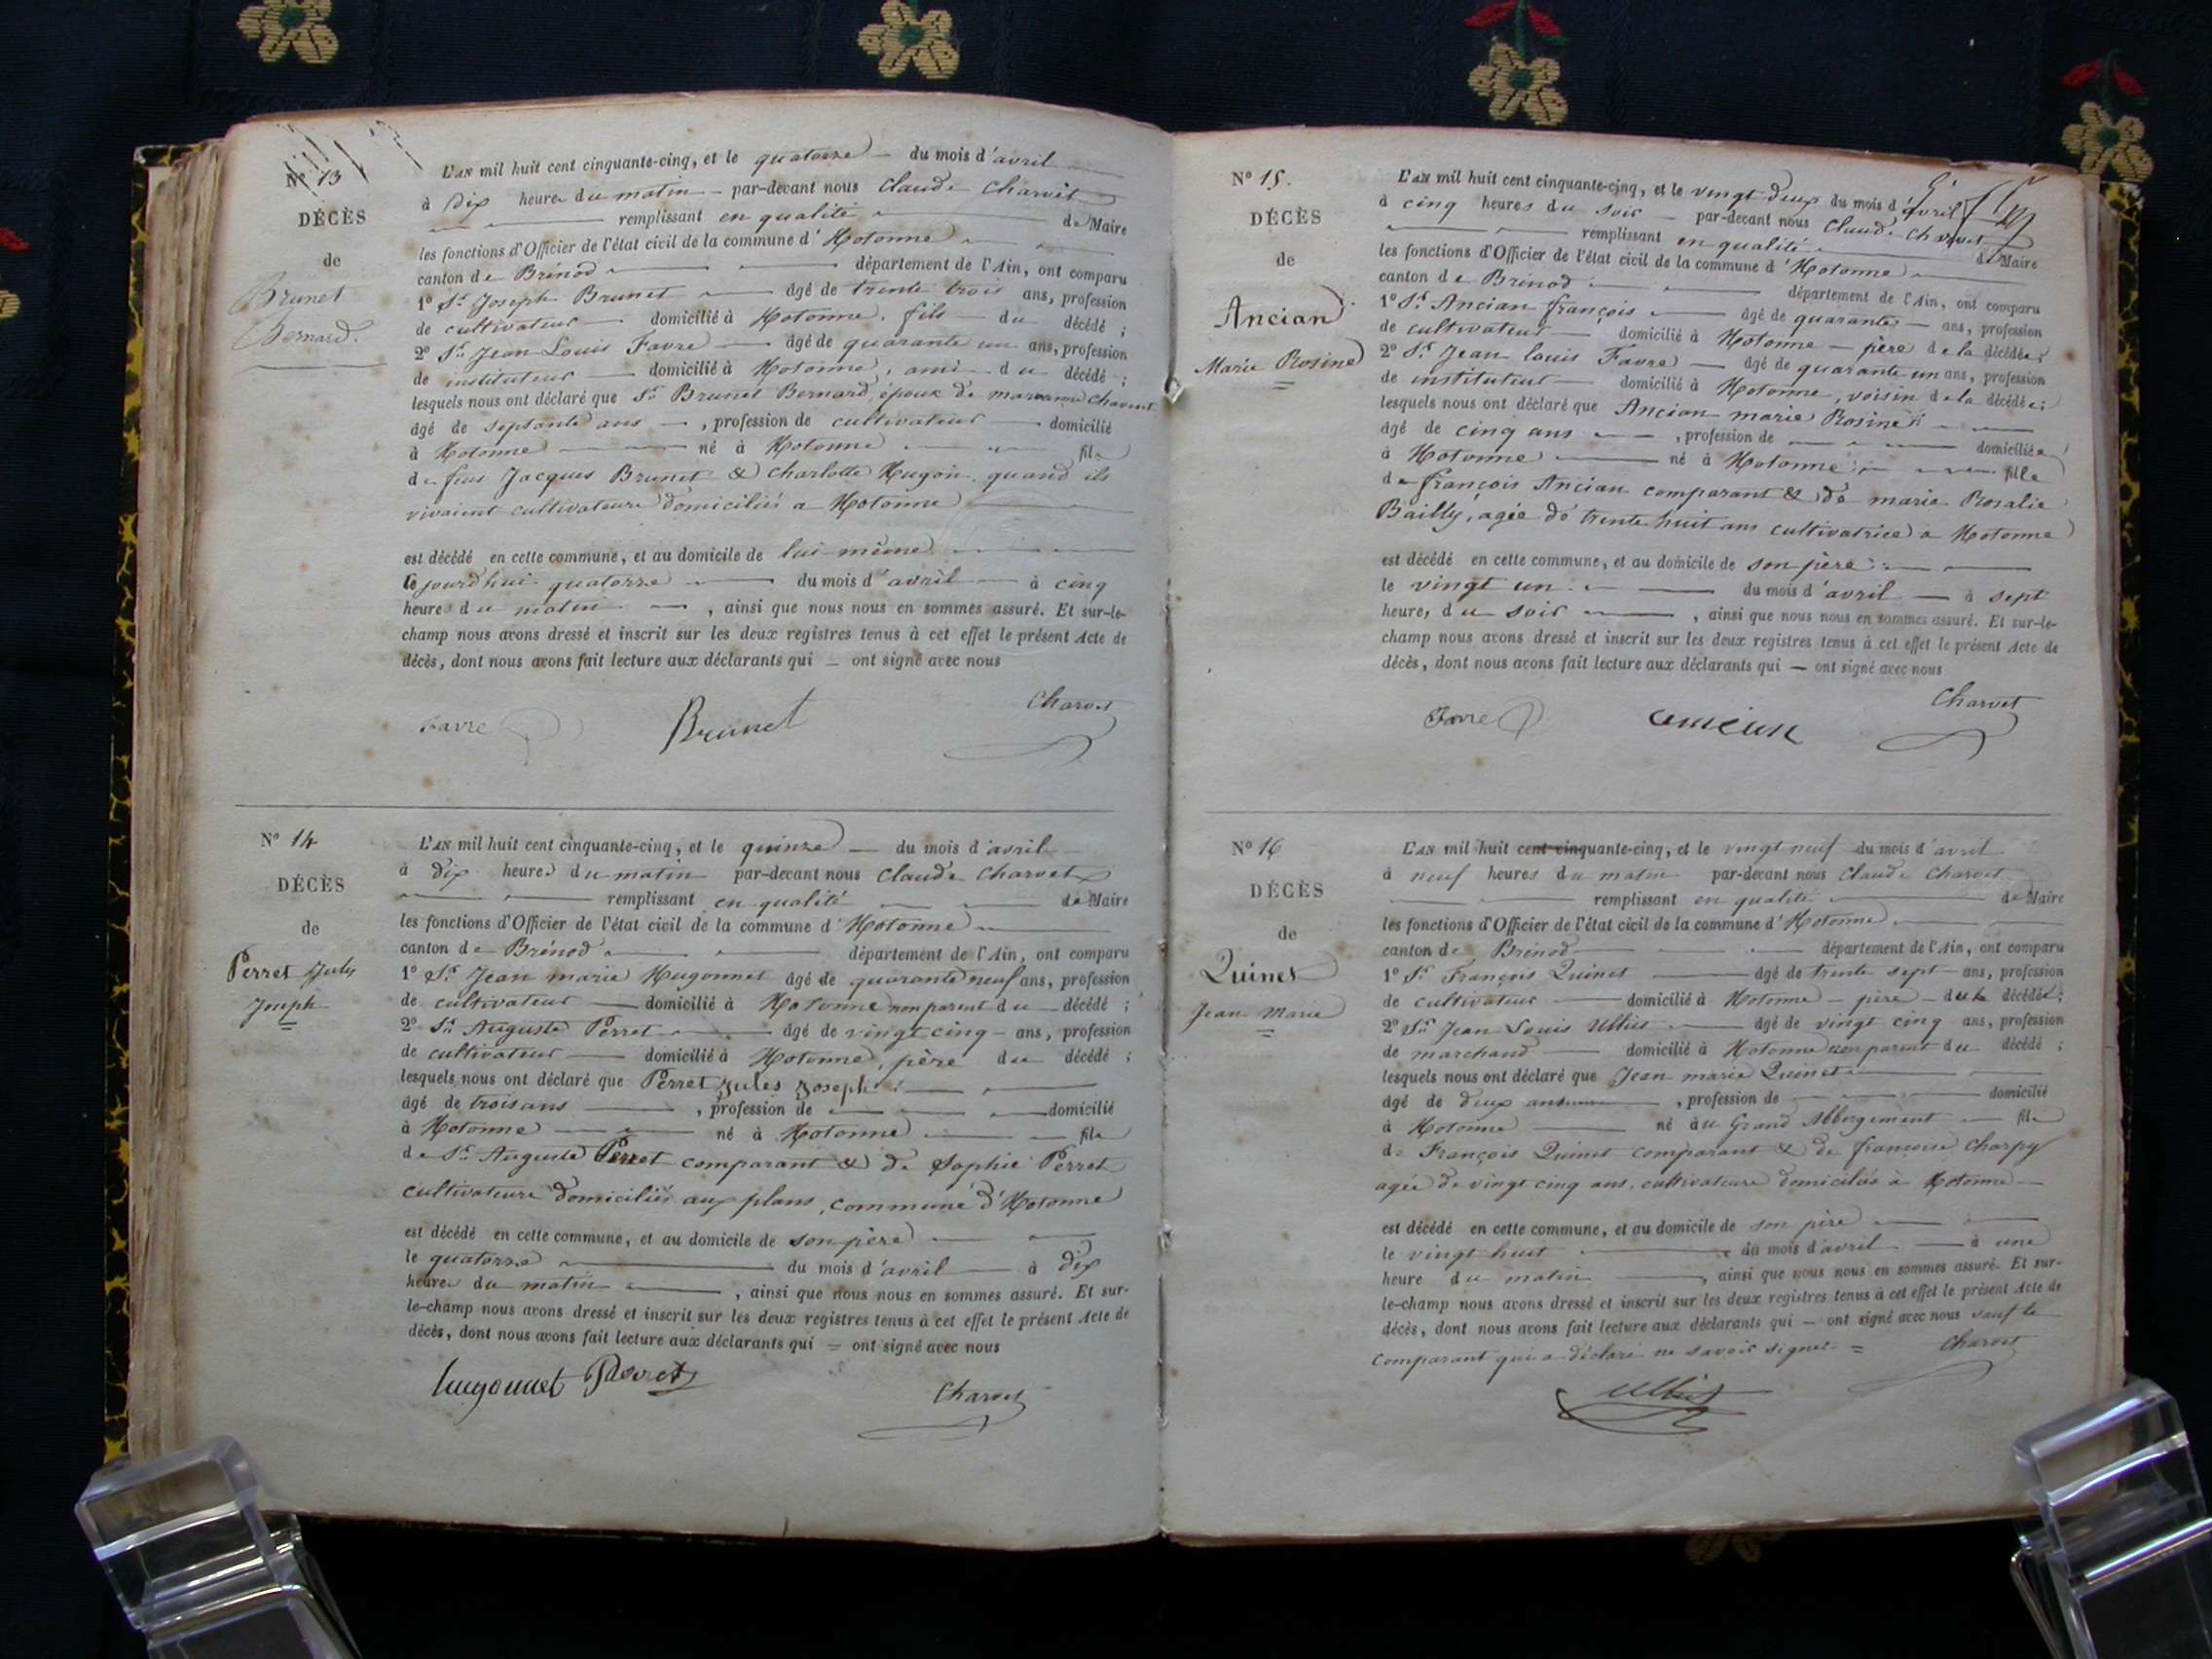 Nº 13
DÉCÈS
de
Brunet
Bernard.
L'AN mil huit cent cinquante-cinq, et le quatorze — du mois d'avril
à dix heures du matin — par-devant nous Claude Charvet
remplissant en qualité de Maire
les fonctions d'Officier de l'état civil de la commune d'Hotonne
canton de Brénod département de l'Ain, ont comparu
1º Sr Joseph Brunet âgé de trente trois ans, profession
de cultivateur domicilié à Hotonne, fils du décédé ;
2º Sr Jean Louis Favre âgé de quarante un ans, profession
de instituteur domicilié à Hotonne, ami du décédé ;
lesquels nous ont déclaré que Sr Brunet Bernard, époux de marianne Charvet
âgé de septante ans, profession de cultivateur domicilié
à Hotonne né à Hotonne fils
de feus Jacques Brunet & Charlotte Hugon, quand ils
vivaient cultivateurs domiciliés a Hotonne
est décédé en cette commune, et au domicile de lui-même
Cejourd'hui quatorze du mois d'avril à cinq
heures du matin, ainsi que nous nous en sommes assuré. Et sur-le-
champ nous avons dressé et inscrit sur les deux registres tenus à cet effet le présent Acte de
décès, dont nous avons fait lecture aux déclarants qui — ont signé avec nous
Favre Brunet Charvet
Nº 14
DÉCÈS
de
Perret Jules
Joseph
L'AN mil huit cent cinquante-cinq, et le quinze — du mois d'avril
à dix heures du matin par-devant nous Claude Charvet
remplissant en qualité de Maire
les fonctions d'Officier de l'état civil de la commune d'Hotonne
canton de Brénod département de l'Ain, ont comparu
1º Sr Jean marie Hugonnet âgé de quarante neuf ans, profession
de cultivateur domicilié à Hotonne non parent du décédé ;
2º Sr Auguste Perret âgé de vingt cinq ans, profession
de cultivateur domicilié à Hotonne, père du décédé ;
lesquels nous ont déclaré que Perret Jules Joseph
âgé de trois ans, profession de domicilié
à Hotonne né à Hotonne fils
de Sr Auguste Perret comparant & de Sophie Perret
cultivateurs domiciliés aux plans, commune d'Hotonne
est décédé en cette commune, et au domicile de son père
le quatorze du mois d'avril à dix
heures du matin, ainsi que nous nous en sommes assuré. Et sur-
le-champ nous avons dressé et inscrit sur les deux registres tenus à cet effet le présent Acte de
décès, dont nous avons fait lecture aux déclarants qui = ont signé avec nous
hugonnet Perret Charvet
Nº 15.
DÉCÈS
de
Ancian
Marie Rosine
L'AN mil huit cent cinquante-cinq, et le vingt deux du mois d'avril
à cinq heures du soir — par-devant nous Claude Charvet
remplissant en qualité de Maire
les fonctions d'Officier de l'état civil de la commune d'Hotonne
canton de Brénod département de l'Ain, ont comparu
1º Sr Ancian françois âgé de quarante — ans, profession
de cultivateur domicilié à Hotonne — père de la décédée ;
2º Sr Jean louis Favre âgé de quarante un ans, profession
de instituteur domicilié à Hotonne, voisin de la décédée ;
lesquels nous ont déclaré que Ancian marie Rosine
âgé de cinq ans, profession de domiciliée
à Hotonne né à Hotonne fille
de françois Ancian comparant & de marie Rosalie
Bailly, agée de trente huit ans cultivatrice a Hotonne
est décédé en cette commune, et au domicile de son père
le vingt un du mois d'avril — à sept
heures du soir, ainsi que nous nous en sommes assuré. Et sur-le-
champ nous avons dressé et inscrit sur les deux registres tenus à cet effet le présent Acte de
décès, dont nous avons fait lecture aux déclarants qui — ont signé avec nous
Favre ancian Charvet
Nº 16
DÉCÈS
de
Quinet
Jean Marie
L'AN mil huit cent cinquante-cinq, et le vingt neuf du mois d'avril
à neuf heures du matin par-devant nous Claude Charvet
remplissant en qualité de Maire
les fonctions d'Officier de l'état civil de la commune d'Hotonne
canton de Brénod département de l'Ain, ont comparu
1º Sr François Quinet âgé de trente sept ans, profession
de cultivateur domicilié à Hotonne — père — du décédé ;
2º Sr Jean Louis Ulliet âgé de vingt cinq ans, profession
de marchand domicilié à Hotonne non parent du décédé ;
lesquels nous ont déclaré que Jean marie Quinet
âgé de deux ans, profession de domicilié
à Hotonne né au Grand Abbergement fils
de François Quinet comparant & de françoise Charpy
agée de vingt cinq ans, cultivateurs domiciliés à Hotonne
est décédé en cette commune, et au domicile de son père
le vingt huit du mois d'avril — à une
heure du matin, ainsi que nous nous en sommes assuré. Et sur-
le-champ nous avons dressé et inscrit sur les deux registres tenus à cet effet le présent Acte de
décès, dont nous avons fait lecture aux déclarants qui — ont signé avec nous sauf le
comparant qui a déclaré ne savoir signer = Charvet
Ulliet